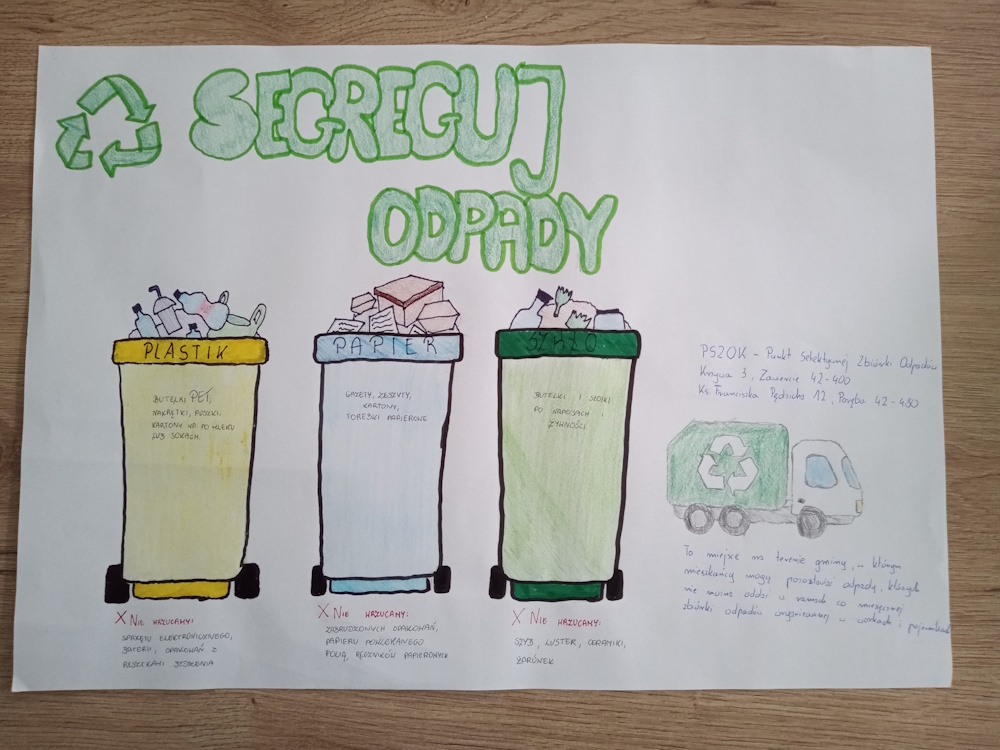 SEGREGUJ
ODPADY
PLASTIK
BUTELKI PET,
NAKRĘTKI, PUSZKI,
KARTONY NP. PO MLEKU
LUB SOKACH.
X NIE WRZUCAMY:
SPRZĘTU ELEKTRONICZNEGO,
BATERII, OPAKOWAŃ Z
RESZTKAMI JEDZENIA
PAPIER
GAZETY, ZESZYTY,
KARTONY,
TOREBKI PAPIEROWE
X NIE WRZUCAMY:
ZABRUDZONYCH OPAKOWAŃ,
PAPIERU POWLEKANEGO
FOLIĄ, RĘCZNIKÓW PAPIEROWYCH
SZKŁO
BUTELKI I SŁOIKI
PO NAPOJACH I
ŻYWNOŚCI
X NIE WRZUCAMY:
SZYB, LUSTER, CERAMIKI,
ŻARÓWEK
PSZOK - Punkt Selektywnej Zbiórki Odpadów
Krzywa 3, Zawiercie 42-400
Ks. Franciszka Pędzicha 12, Poręba 42-480
To miejsce na terenie gminy, w którym
mieszkańcy mogą pozostawić odpady, których
nie można oddać w ramach co miesięcznej
zbiórki odpadów w workach i pojemnikach